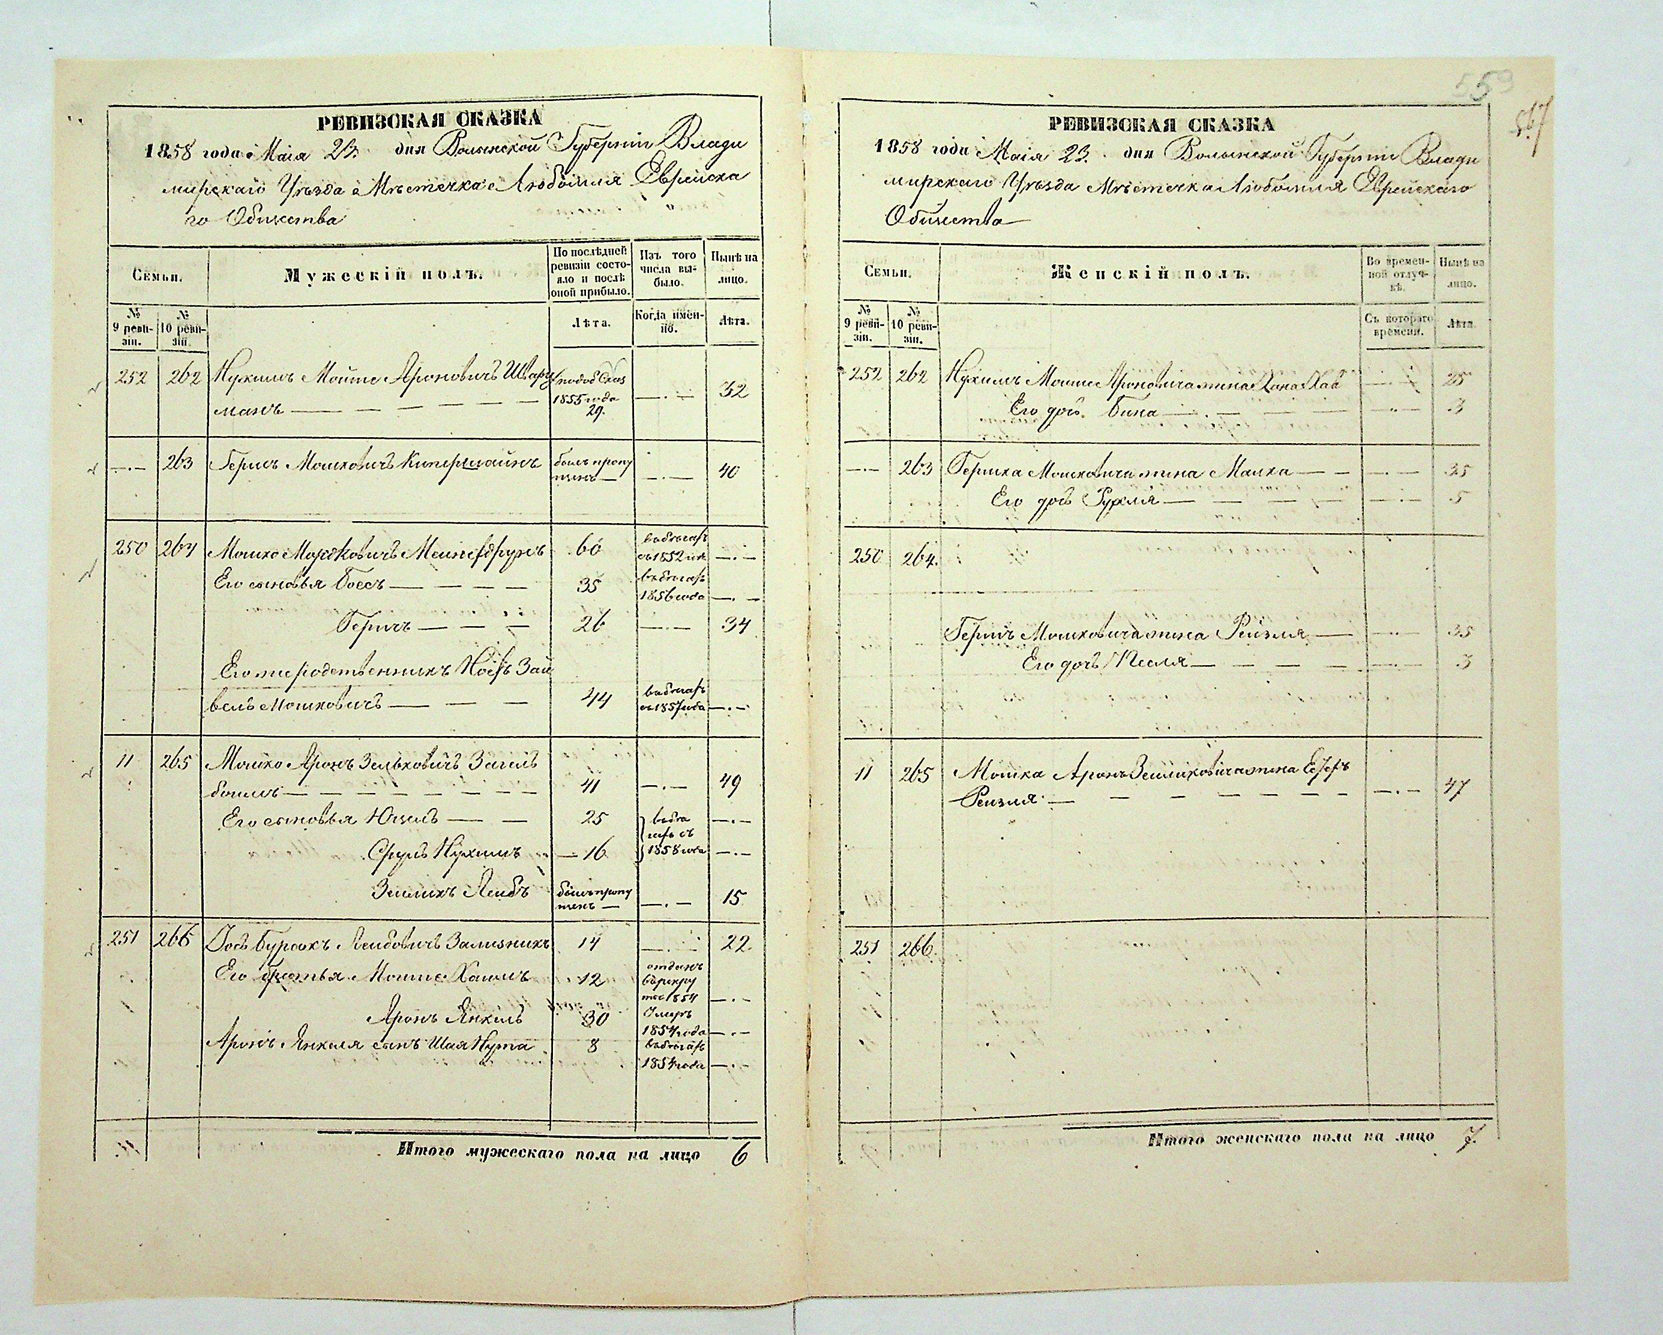 559
567
РЕВИЗСКАЯ СКАЗКА
1858 года Маія 23 дня Волынской Губерніи Влади
мирскаго Уѣзда Мѣстечка Любомля Еврейска
го Общества
Семьи.
Мужескій полъ.
По послѣдней ревизіи состояло и послѣ оной прибыло.
Изъ того числа выбыло.
Нынѣ на лицо.
№ 9 ревизіи.
№ 10 ревизіи.
Лѣта.
Когда именно.
Лѣта.
252 262 Нухимъ Мошко Ароновичъ Шварц 1855 года 29. — . — 32
манъ — — — — — —
— . — 263 Гершъ Мошковичъ былъ пропу
щенъ — — . — 40
250 264 Мошко 60 въ бѣгахъ съ 1852 — . —
Его сыновья Йосъ — — — 35 въ бѣгахъ 1856 года — . —
Гершъ — — — 26 — . — 34
Его родственникъ Зай
велъ Мошковичъ — — — 44 въ бѣгахъ съ 1857 года — . —
11 265 Мошко Аронъ Зельковичъ
41 — . — 49
Его сыновья — — 25 въ бѣ — . —
Сруль Нухимъ — 16 гахъ съ 1858 года — . —
Зелликъ Лейбъ былъ пропу
щенъ — — . — 15
251 266 Лейбовичъ Зализникъ 14 — . — 22
Его братья Мошко Хаимъ 12 отданъ въ рекру
ты 1854 — . —
Аронъ Янкель 30 Умеръ 1854 года — . —
Аронъ Янкеля сынъ Шая Нута 8 въ бѣгахъ 1854 года — . —
Итого мужескаго пола на лицо 6
РЕВИЗСКАЯ СКАЗКА
1858 года Маія 23 дня Волынской Губерніи Влади
мирскаго Уѣзда Мѣстечка Любомля Еврейскаго
Общества
Семьи.
Женскій полъ.
Во временной отлучкѣ.
Нынѣ на лицо.
№ 9 ревизіи.
№ 10 ревизіи.
Съ котораго времени.
Лѣта.
252 262 Нухимъ Мошко Ароновича жена Хана — . — 25
Его дочь Бина — . — 3
— . — 263 Гершка Мошковича жена Малка — — — . — 35
Его дочь Рухля — — — — — . — 5
250 264.
Гершъ Мошковича жена Рейзля — — . — 35
Его дочь Песля — — — — — . — 3
11 265 Мошка Аронъ Зелликовича жена Естеръ
Рейзля — — — — — — — . — 47
251 266
Итого женскаго пола на лицо 7.